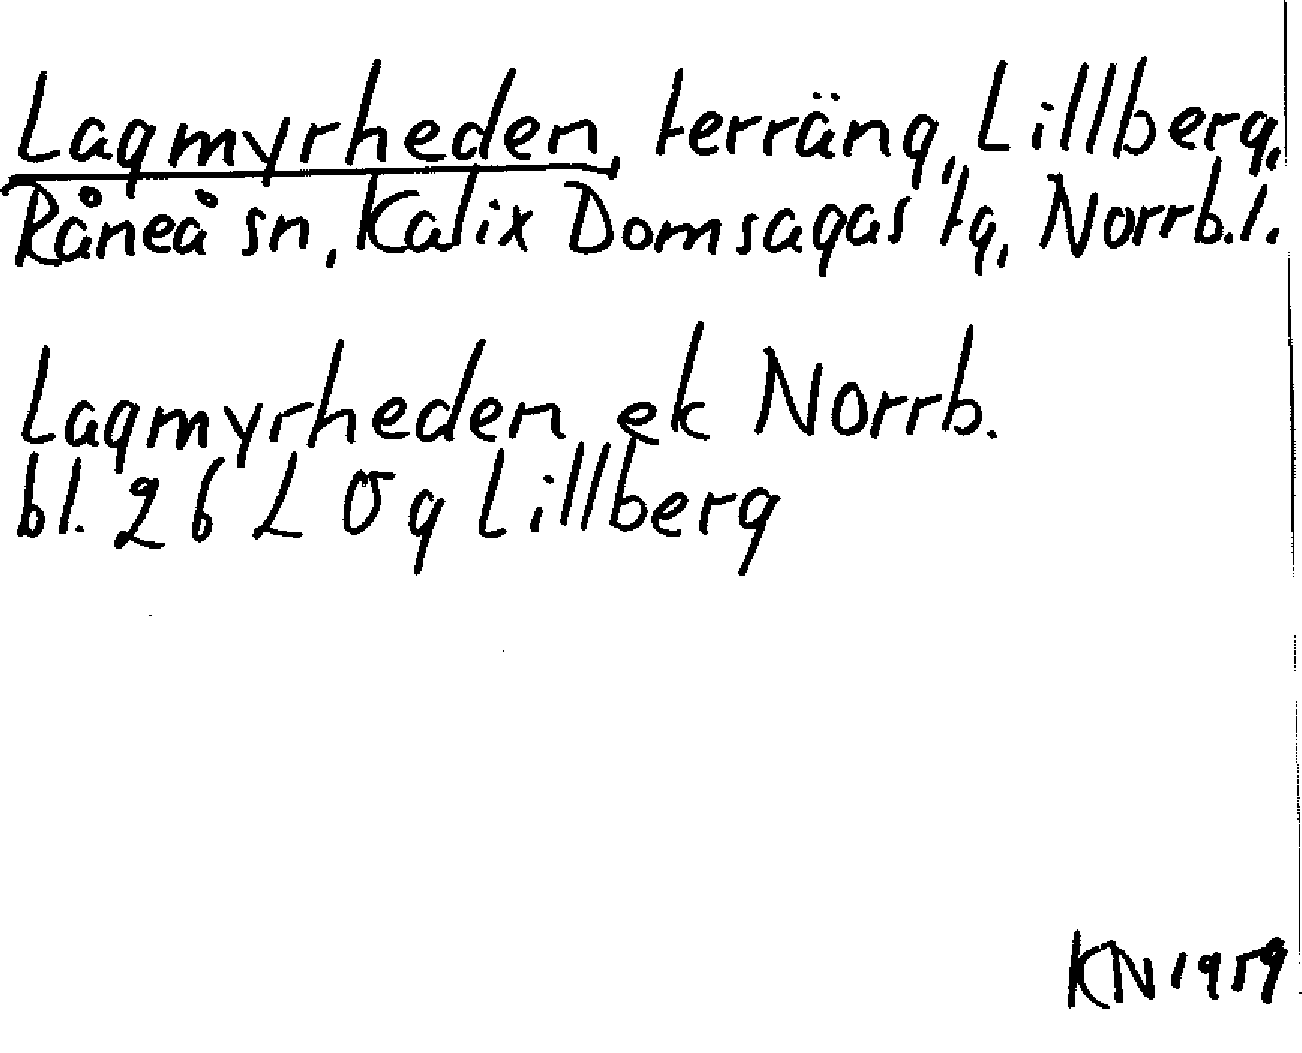 Lagmyrheden, terräng, Lillberg,
Råneå sn, Kalix Domsagas tg, Norrb.l.
Lagmyrheden ek Norrb.
bl. 26 L 0g Lillberg
KN 1959